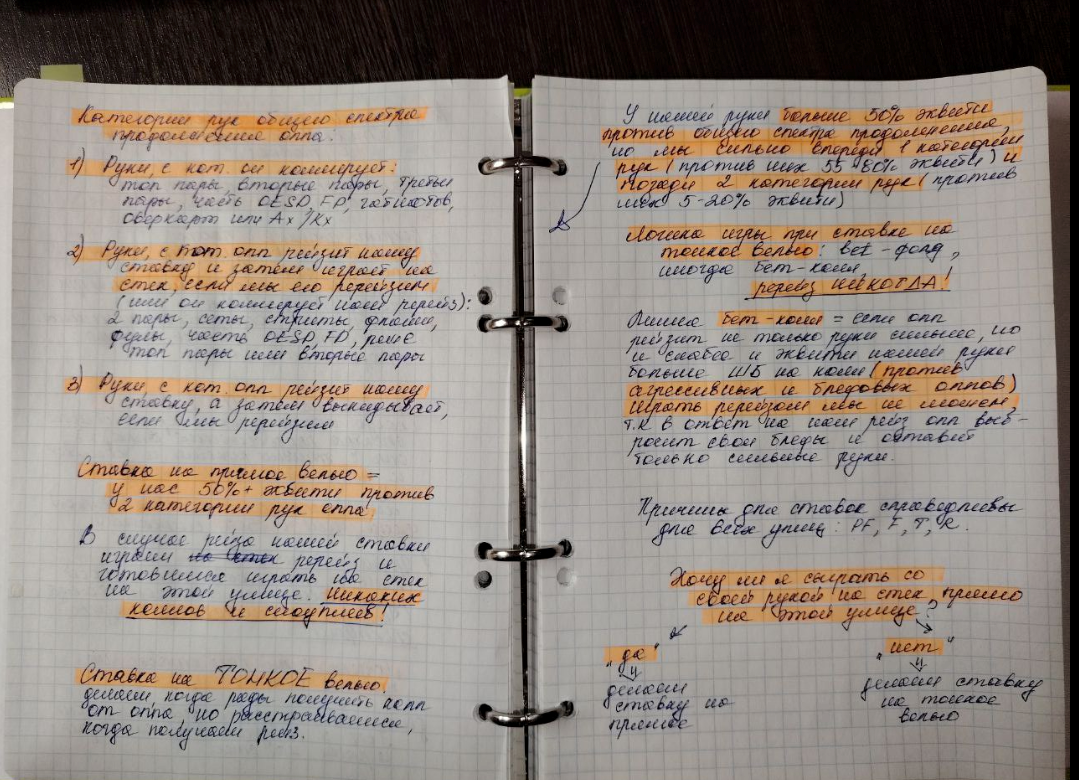 Категории рук общего спектра
продолжения оппа:
1) Руки, с кот. он коллирует:
топ пары, вторые пары, третьи
пары, часть OESD, FD, гатшотов,
оверкарт или Ax/Kx
2) Руки, с кот. опп рейзит нашу
ставку и затем играет на
стек, если мы его ререйзим
(или он коллирует наш ререйз):
2 пары, сеты, стриты, флаши,
фулы, часть OESD, FD, реже
топ пары или вторые пары
3) Руки, с кот. опп рейзит нашу
ставку, а затем выкидывает,
если мы ререйзим
Ставка на прямое велью =
у нас 50%+ эквити против
2 категории рук оппа
В случае рейза нашей ставки
играем на стек ререйз и
готовимся играть на стек
на этой улице. Никаких
коллов и слоуплеев!
Ставка на ТОНКОЕ велью.
делаем когда рады получить колл
от оппа, но расстраиваемся,
когда получаем рейз.
У нашей руки больше 50% эквити
против общего спектра продолжения,
но мы сильно впереди 1 категории
рук (против них 55-80% эквити) и
позади 2 категории рук (против
них 5-20% эквити)
Логика игры при ставке на
тонкое велью: bet-фолд,
иногда бет-колл,
ререйз НИКОГДА!
Линия бет-колл = если опп
рейзит не только руки сильнее, но
и слабее и эквити нашей руки
больше ШБ на колл (против
агрессивных и блефовых оппов)
Играть ререйзом мы не можем,
т.к в ответ на наш рейз опп выб-
росит свои блефы и оставит
только сильные руки.
Причины для ставок справедливы
для всех улиц: PF, F, T, R.
Хочу ли я сыграть со
своей рукой на стек прямо
на этой улице?
"да"
"нет"
делаем
ставку на
прямое
делаем ставку
на тонкое
велью